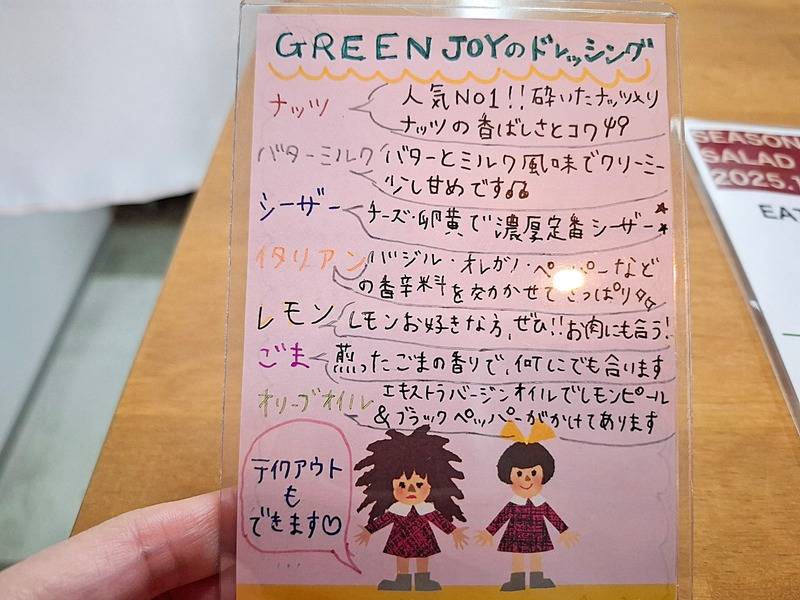 GREEN JOYのドレッシング
ナッツ
人気NO1!!砕いたナッツ入り
ナッツの香ばしさとコク
バターミルク
バターとミルク風味でクリーミー
少し甘めです
シーザー
チーズ・卵黄で濃厚定番シーザー
イタリアン
バジル・オレガノ・ペッパーなど
の香辛料を効かせてさっぱり
レモン
レモンお好きな方、ぜひ!!お肉にも合う!
ごま
煎ったごまの香りで、何にでも合います
オリーブオイル
エキストラバージンオイルでレモンピール
&ブラックペッパーがかけてあります
テイクアウト
も
できます♡
SEASON
SALAD
2025.1
EAT